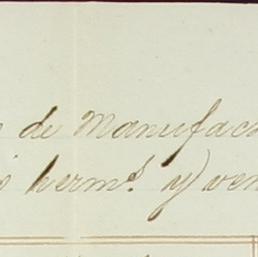 de Manufac
herm.s y) ven